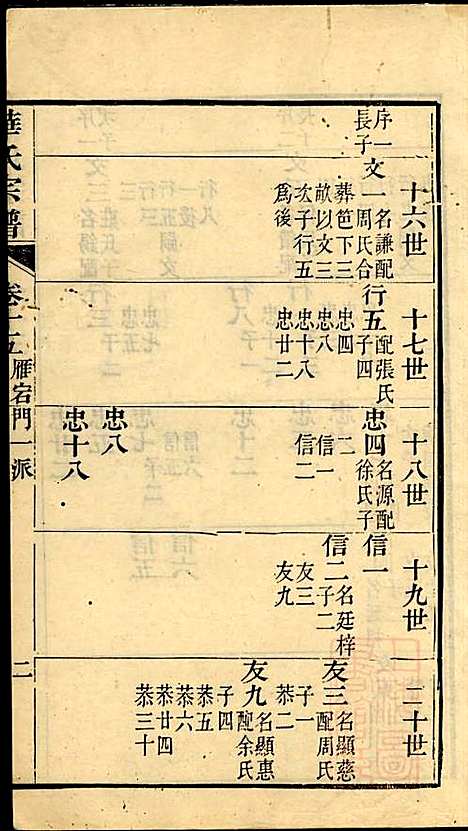 十六世
序一
長子
文一
名謙配
周氏合
葬笆下三
畝以文三
次子行五
為後
十七世
行五
配張氏
子四
忠四
忠八
忠十八
忠廿二
十八世
忠四
名源配
徐氏子
二
信一
信二
忠八
忠十八
十九世
信一
信二
名廷梓
子二
友三
友九
二十世
友三
名顯慈
配周氏
子一
恭二
友九
名顯惠
配余氏
子四
恭五
恭六
恭廿四
恭三十
華氏宗譜
卷二五
雁宕門一派
二